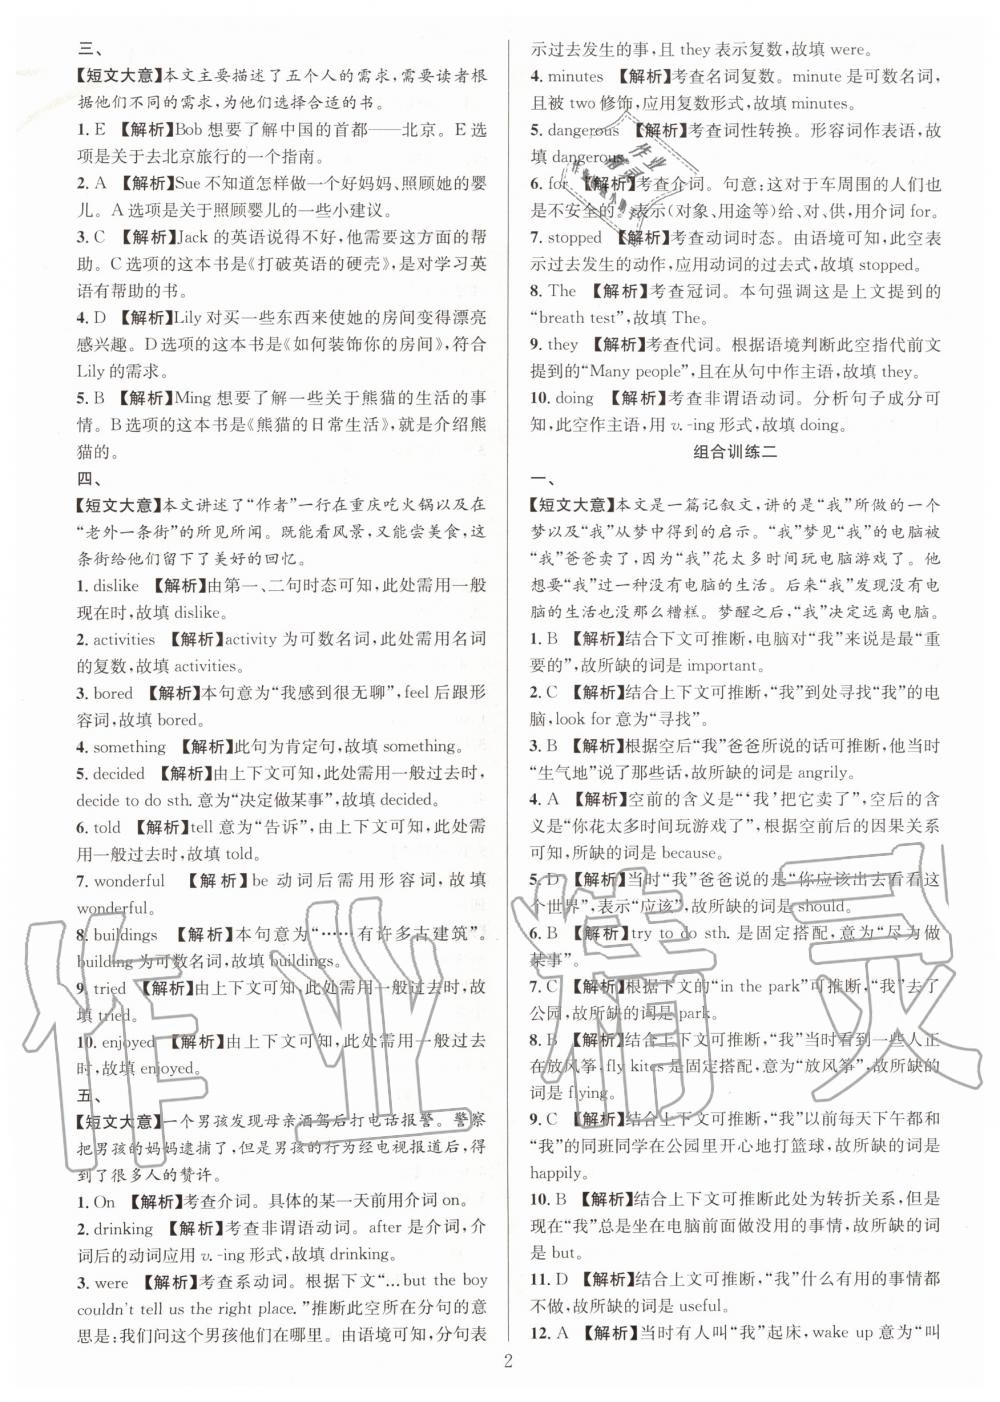 三、
【短文大意】本文主要描述了五个人的需求,需要读者根
据他们不同的需求,为他们选择合适的书。
1. E 【解析】Bob 想要了解中国的首都——北京。E 选
项是关于去北京旅行的一个指南。
2. A 【解析】Sue 不知道怎样做一个好妈妈、照顾她的婴
儿。A 选项是关于照顾婴儿的一些小建议。
3. C 【解析】Jack 的英语说得不好,他需要这方面的帮
助。C 选项的这本书是《打破英语的硬壳》,是对学习英
语有帮助的书。
4. D 【解析】Lily 对买一些东西来使她的房间变得漂亮
感兴趣。D 选项的这本书是《如何装饰你的房间》,符合
Lily 的需求。
5. B 【解析】Ming 想要了解一些关于熊猫的生活的事
情。B 选项的这本书是《熊猫的日常生活》,就是介绍熊
猫的。
四、
【短文大意】本文讲述了“作者”一行在重庆吃火锅以及在
“老外一条街”的所见所闻。既能看风景,又能尝美食,这
条街给他们留下了美好的回忆。
1. dislike 【解析】由第一、二句时态可知,此处需用一般
现在时,故填 dislike。
2. activities 【解析】activity 为可数名词,此处需用名词
的复数,故填 activities。
3. bored 【解析】本句意为“我感到很无聊”,feel 后跟形
容词,故填 bored。
4. something 【解析】此句为肯定句,故填 something。
5. decided 【解析】由上下文可知,此处需用一般过去时,
decide to do sth. 意为“决定做某事”,故填 decided。
6. told 【解析】tell 意为“告诉”,由上下文可知,此处需
用一般过去时,故填 told。
7. wonderful 【解析】be 动词后需用形容词,故填
wonderful。
8. buildings 【解析】本句意为“……有许多古建筑”。
building 为可数名词,故填 buildings。
9. tried 【解析】由上下文可知,此处需用一般过去时,故
填 tried。
10. enjoyed 【解析】由上下文可知,此处需用一般过去
时,故填 enjoyed。
五、
【短文大意】一个男孩发现母亲酒驾后打电话报警。警察
把男孩的妈妈逮捕了,但是男孩的行为经电视报道后,得
到了很多人的赞许。
1. On 【解析】考查介词。具体的某一天前用介词 on。
2. drinking 【解析】考查非谓语动词。after 是介词,介
词后的动词应用 v. -ing 形式,故填 drinking。
3. were 【解析】考查系动词。根据下文“...but the boy
couldn't tell us the right place.”推断此空所在分句的意
思是:我们问这个男孩他们在哪里。由语境可知,分句表
示过去发生的事,且 they 表示复数,故填 were。
4. minutes 【解析】考查名词复数。minute 是可数名词,
且被 two 修饰,应用复数形式,故填 minutes。
5. dangerous 【解析】考查词性转换。形容词作表语,故
填 dangerous。
6. for 【解析】考查介词。句意:这对于车周围的人们也
是不安全的。表示(对象、用途等)给、对、供,用介词 for。
7. stopped 【解析】考查动词时态。由语境可知,此空表
示过去发生的动作,应用动词的过去式,故填 stopped。
8. The 【解析】考查冠词。本句强调这是上文提到的
“breath test”,故填 The。
9. they 【解析】考查代词。根据语境判断此空指代前文
提到的“Many people”,且在从句中作主语,故填 they。
10. doing 【解析】考查非谓语动词。分析句子成分可
知,此空作主语,用 v. -ing 形式,故填 doing。
组合训练二
一、
【短文大意】本文是一篇记叙文,讲的是“我”所做的一个
梦以及“我”从梦中得到的启示。“我”梦见“我”的电脑被
“我”爸爸卖了,因为“我”花太多时间玩电脑游戏了。他
想要“我”过一种没有电脑的生活。后来“我”发现没有电
脑的生活也没那么糟糕。梦醒之后,“我”决定远离电脑。
1. B 【解析】结合下文可推断,电脑对“我”来说是最“重
要的”,故所缺的词是 important。
2. C 【解析】结合上下文可推断,“我”到处寻找“我”的电
脑,look for 意为“寻找”。
3. B 【解析】根据空后“我”爸爸所说的话可推断,他当时
“生气地”说了那些话,故所缺的词是 angrily。
4. A 【解析】空前的含义是“‘我’把它卖了”,空后的含
义是“你花太多时间玩游戏了”,根据空前后的因果关系
可知,所缺的词是 because。
5. D 【解析】当时“我”爸爸说的是“你应该出去看看这
个世界”,表示“应该”,故所缺的词是 should。
6. B 【解析】try to do sth. 是固定搭配,意为“尽力做
某事”。
7. C 【解析】根据下文的“in the park”可推断,“我”去了
公园,故所缺的词是 park。
8. B 【解析】结合上下文可推断,“我”当时看到一些人正
在放风筝,fly kites 是固定搭配,意为“放风筝”,故所缺的
词是 flying。
9. C 【解析】结合上下文可推断,“我”以前每天下午都和
“我”的同班同学在公园里开心地打篮球,故所缺的词是
happily。
10. B 【解析】结合上下文可推断此处为转折关系,但是
现在“我”总是坐在电脑前面做没用的事情,故所缺的词
是 but。
11. D 【解析】结合上文可推断,“我”什么有用的事情都
不做,故所缺的词是 useful。
12. A 【解析】当时有人叫“我”起床,wake up 意为“叫
2
作业精灵